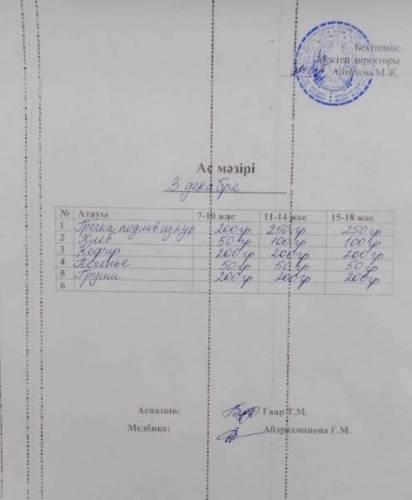 Бекітемін:
Мектеп директоры
М.Ж.
Ас мәзірі
3 декабре
№ Атауы 7-10 жас 11-14 жас 15-18 жас
1 Гречка, подлив из кур 200гр 250гр 250гр
2 Хлеб 50гр 100гр 100гр
3 Кефир 200гр 200гр 200гр
4 Печенье 50гр 50гр 50гр
5 Груши 200гр 200гр 200гр
6
Аспазшы: Гаар Т.М.
Медбике: Абдрахманова Г.М.